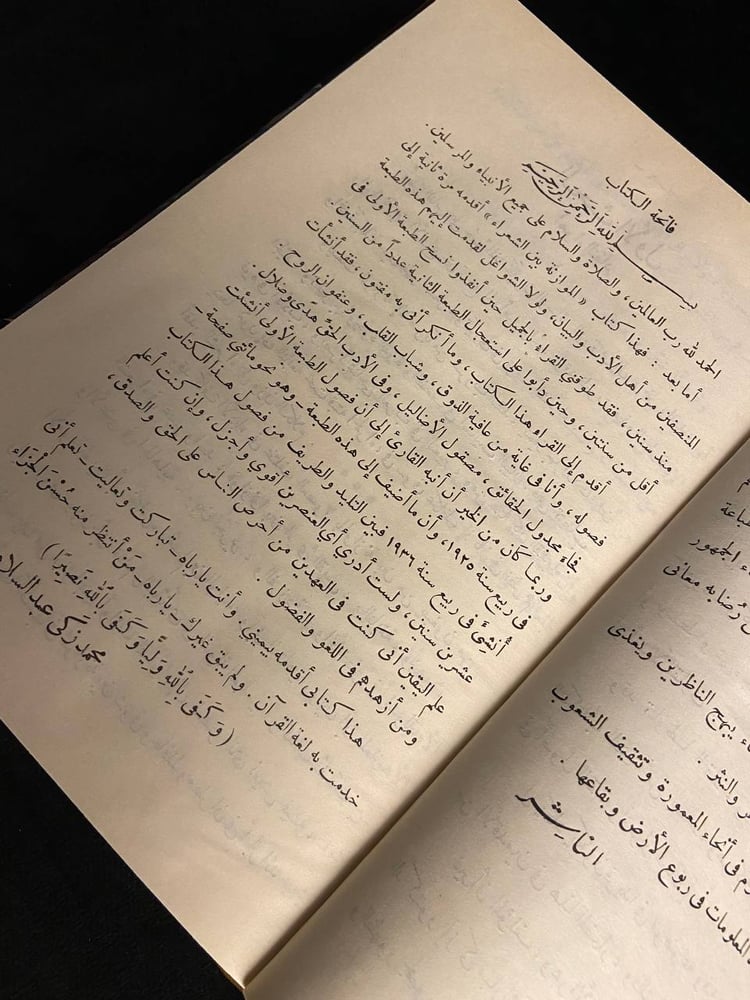 فاتحة الكتاب
بسم الله الرحمن الرحيم
الحمد لله رب العالمين، والصلاة والسلام على جميع الأنبياء والمرسلين.
أما بعد: فهذا كتاب «الموازنة بين الشعراء» أقدمه مرة ثانية إلى
المنصفين من أهل الأدب والبيان، ولولا الشواغل لقدمت إليهم هذه الطبعة
منذ سنين، فقد طوقني القراء بالجميل حين أنفدوا نسخ الطبعة الأولى في
أقل من سنتين، وحين دأبوا على استعجال الطبعة الثانية عدداً من السنين.
أقدم إلى القراء هذا الكتاب، وما أنكر أني به مفتون، فقد أنشأت
فصوله، وأنا في غاية من عافية الذوق، وشباب القلب، وعنفوان الروح.
فجاء مجدول الحقائق، مصقول الأضاليل، وفي الأدب الحق هدًى وضلال.
وربما كان من الخير أن أنبه القارئ إلى أن فصول الطبعة الأولى أنشئت
في ربيع سنة ١٩٢٥، وأن ما أضيف إلى هذه الطبعة - وهو نحو مائتي صفحة -
أنشئ في ربيع سنة ١٩٣٦ فبين التليد والطريف من فصول هذا الكتاب
عشرين سنين، ولست أدري أي العنصرين أقوي وأجزل، وإن كنت أعلم
علم اليقين أني كنت في العهدين من أحرص الناس على الحق والصدق،
ومن أزهدهم في اللغو والفضول.
هذا كتابي أقدمه بيميني. وأنت ياربّاه - تباركت وتعاليت - تعلم أني
خدمت به لغة القرآن. ولم يبق غيرك - ياربّاه - مَنْ أنتظر منه حُسْنَ الجَزَاء
(وَكَفَى بِاللهِ وَلِيًّا وَكَفَى بِاللهِ نَصِيرًا)
محمد زكي عبد السلام
الجمهور
رُضابه معاني
يبهج الناظرين ويغذي
والنثر.
في أنحاء المعمورة وتثقيف الشعوب
المعلومات في ربوع الأرض وبقاعها.
الناشر